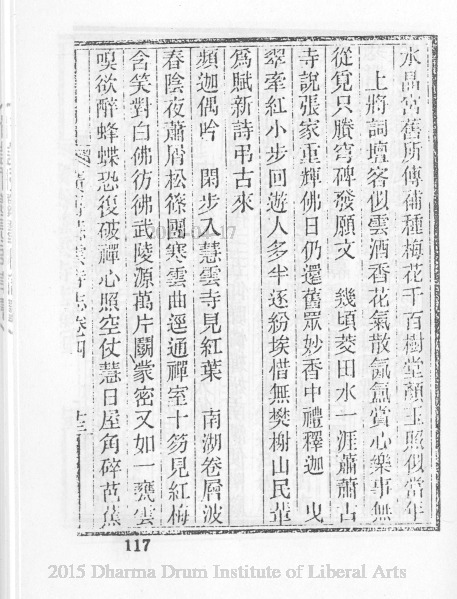 水晶宮舊所傳補種梅花千百樹堂顏玉照似當年
上將詞壇客似雲酒香花氣散氤氳賞心樂事無
從覓只賸穹碑發願文　幾頃菱田水一涯蕭蕭古
寺說張家重輝佛日仍還舊眾妙香中禮釋迦　曳
翠牽紅小步回遊人多半逐紛埃惜無樊榭山民輩
爲賦新詩弔古來
頻迦偶吟　閑步入慧雲寺見紅葉　南湖卷層波
春陰夜蕭屑松篠閟寒雲曲逕通禪室十笏見紅梅
含笑對白佛彷彿武陵源萬片鬭蒙密又如一甕雲
嗅欲醉蜂蝶恐復破禪心照空仗慧日屋角碎芭蕉
雲寺志卷四
117
2015 Dharma Drum Institute of Liberal Arts